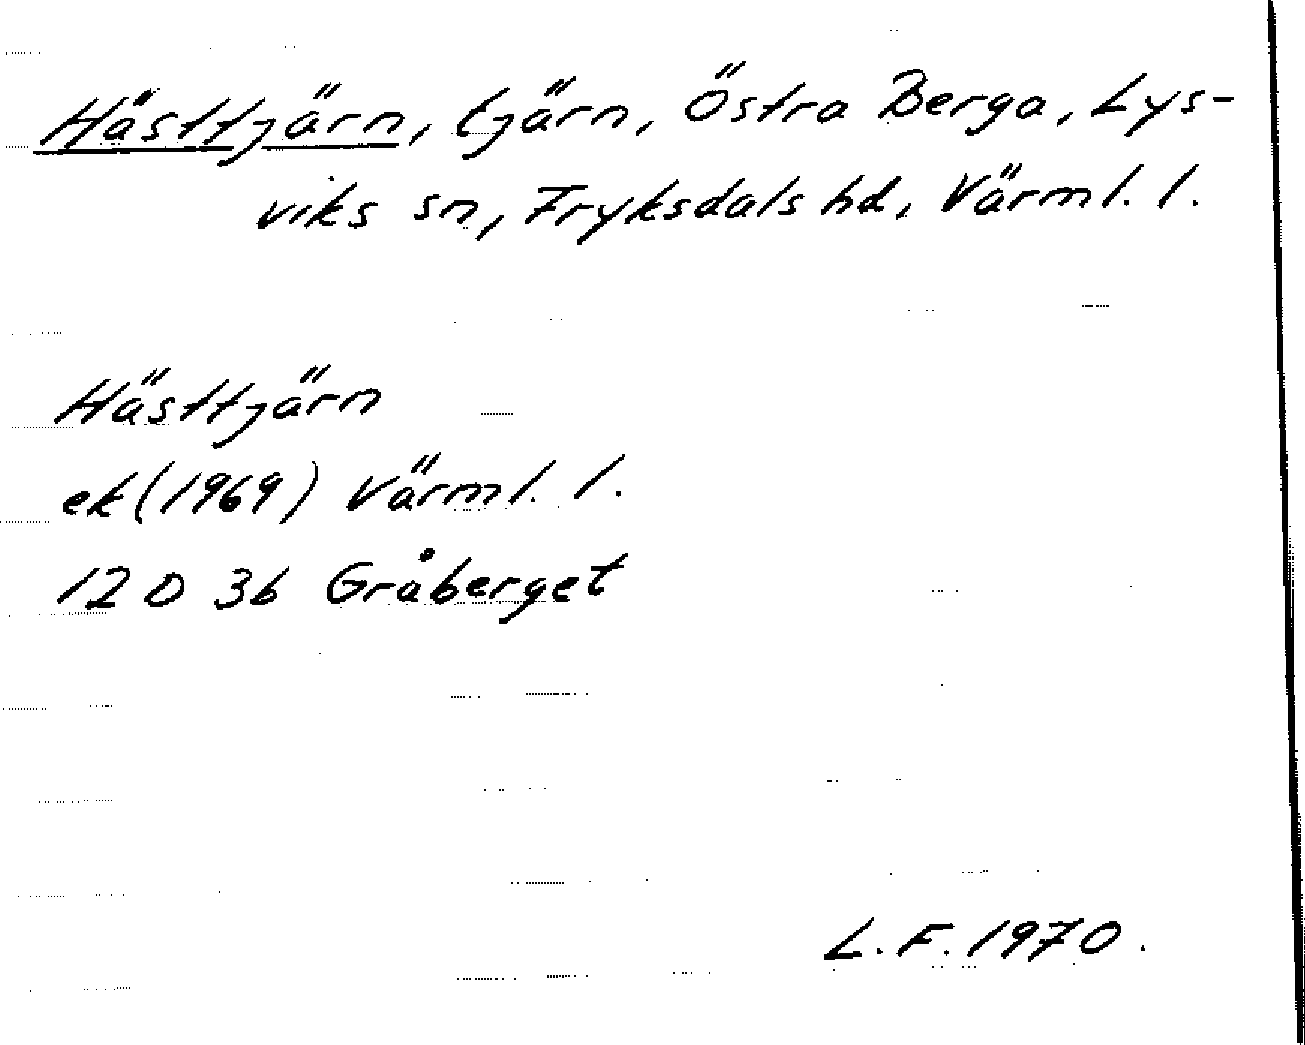 Hästtjärn, tjärn, Östra Berga, Lys-
viks sn, Fryksdals hd, Värml. l.
Hästtjärn
ek (1969) Värml. l.
12 D 3b Gråberget
L. F. 1970.